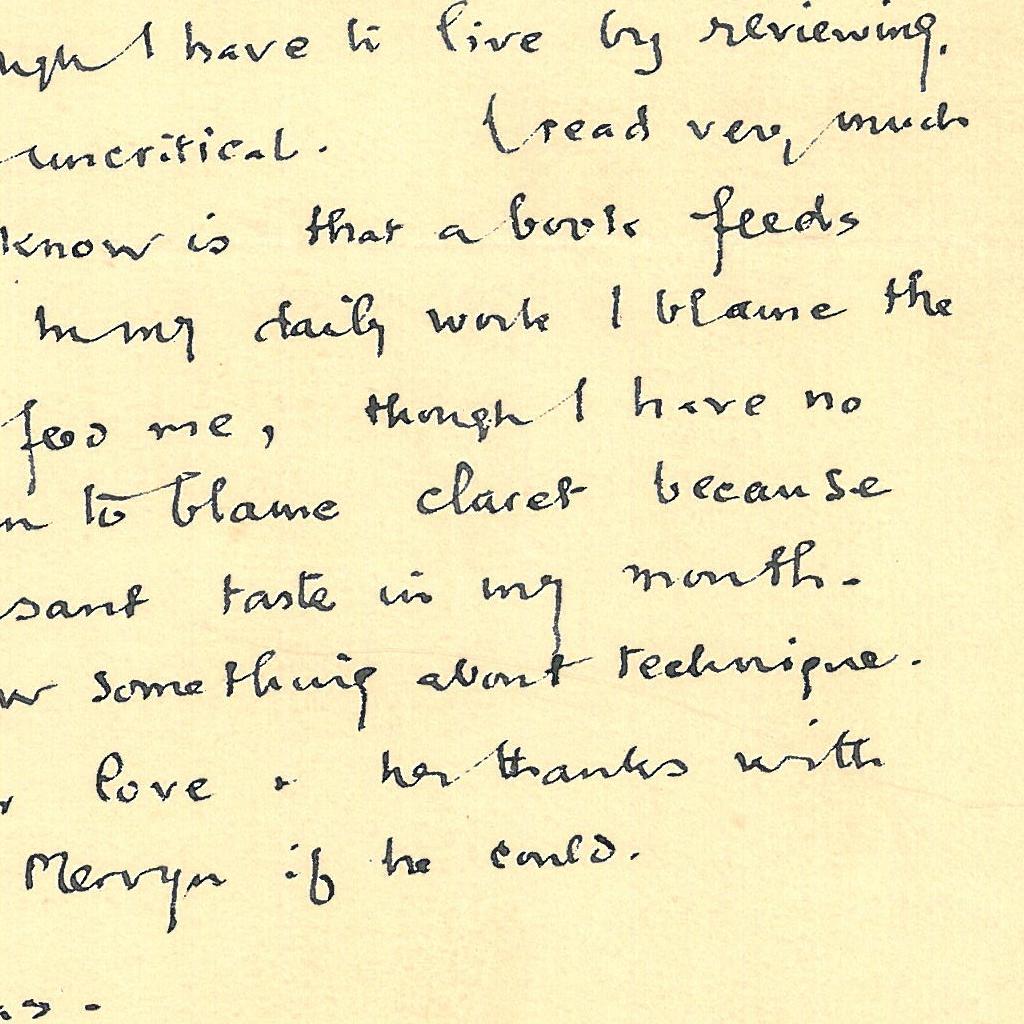 I have to live by reviewing.
uncritical. I read very much
know is that a book feeds
In my daily work I blame the
feed me, though I have no
to blame claret because
taste in my mouth.
something about technique.
love & her thanks with
Mervyn if he could.